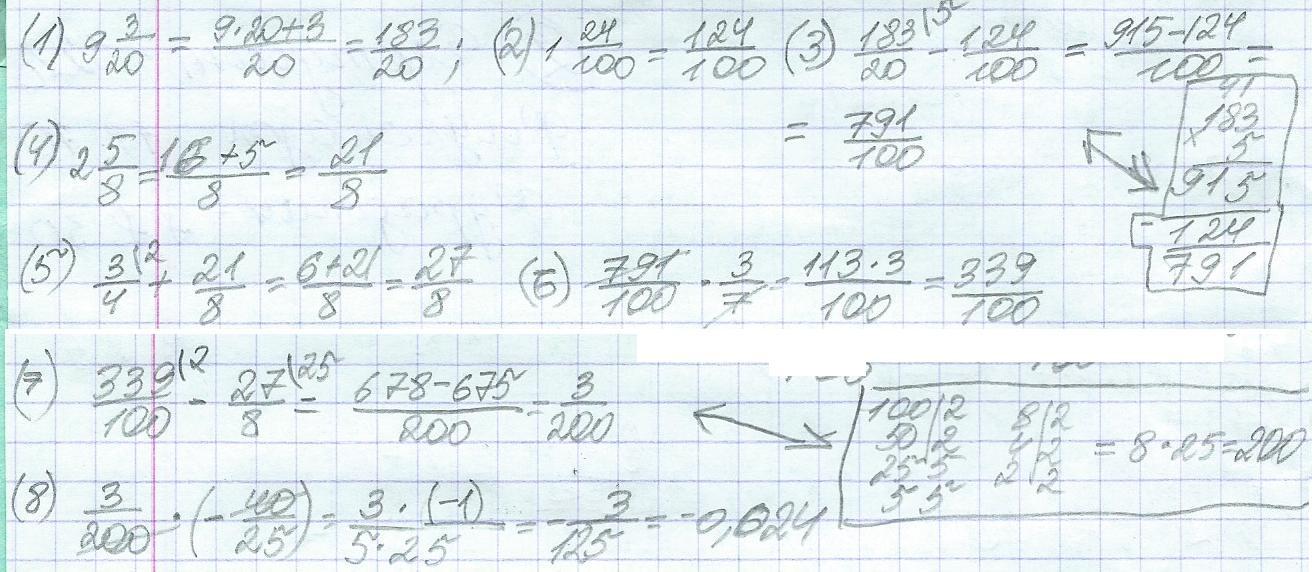 (1) 9 3/20 = (9·20+3)/20 = 183/20 ; (2) 1 24/100 = 124/100 (3) 183/20 \5 - 124/100 = (915-124)/100 =
= 791/100
41
183
× 5
915
- 124
791
(4) 2 5/8 = (16+5)/8 = 21/8
(5) 3/4 \2 + 21/8 = (6+21)/8 = 27/8 (6) 791/100 · 3/7 = (113·3)/100 = 339/100
(7) 339/100 \2 - 27/8 \25 = (678-675)/200 = 3/200
100|2 8|2
50|2 4|2 = 8·25=200
25 5 2|2
5 5
(8) 3/200 · (-40/25) = (3·(-1))/(5·25) = -3/125 = -0,024